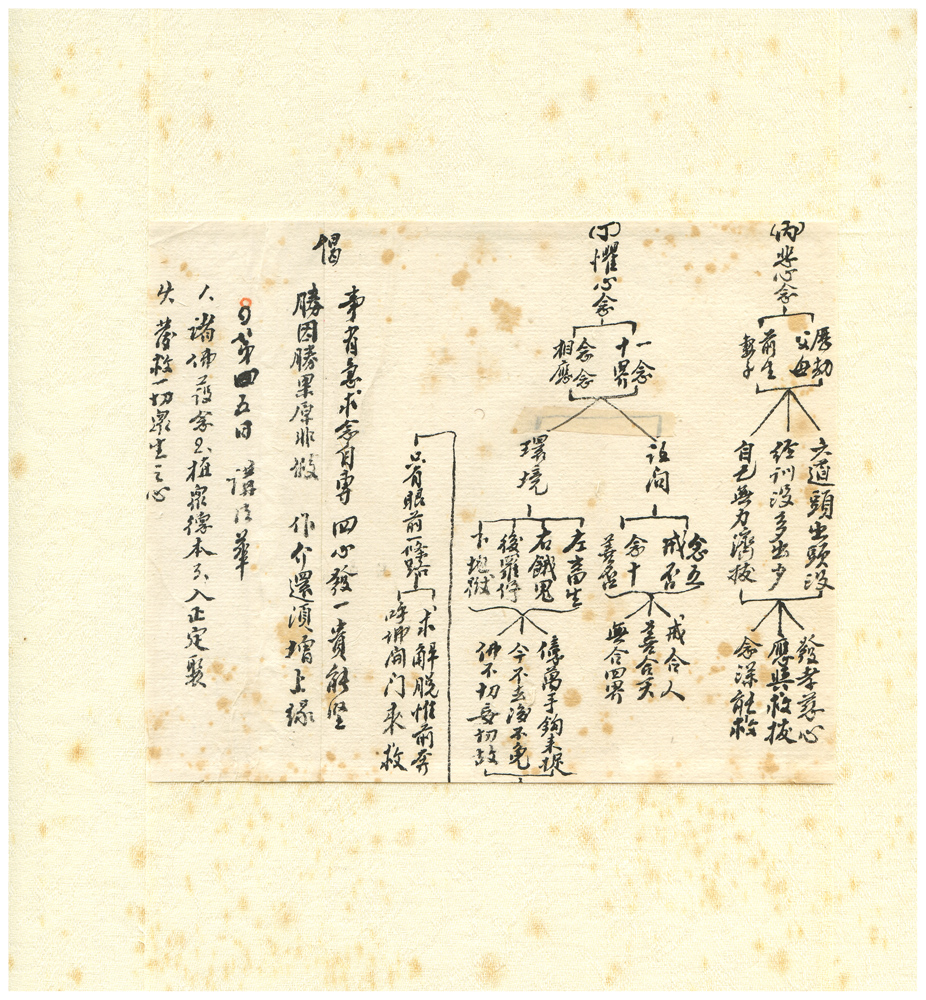 (丙)悲心念
歷劫
父母
前生
妻子
六道頭出頭沒
經訓沒多出少
自己無力濟拔
發孝慈心
應與救拔
念深能救
(丁)懼心念
一念
十界
念念
相應
設問
念五
戒否
念十
善否
戒合人
善合天
無合四界
環境
左畜生
右餓鬼
後羅
下地獄
萬手鉤未捉
今不去淨不免
佛不切妄切故
只有眼前一條路
求解脫惟前奔
呼佛開門來救
偈
事省意求念自專 四心發一貴能堅
勝因勝果原非 作介還須增上緣
第四五日 講法華
人 諸佛護念 植眾德本 入正定聚
發救一切眾生之心